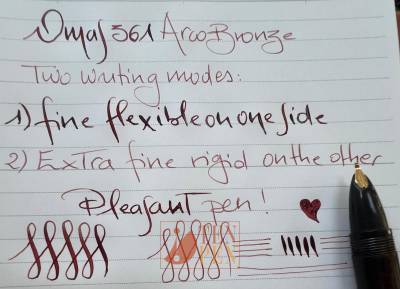 Omas 361 Arco Bronze
Two writing modes:
1) fine flexible on one side
2) Extra fine rigid on the other
Pleasant pen!